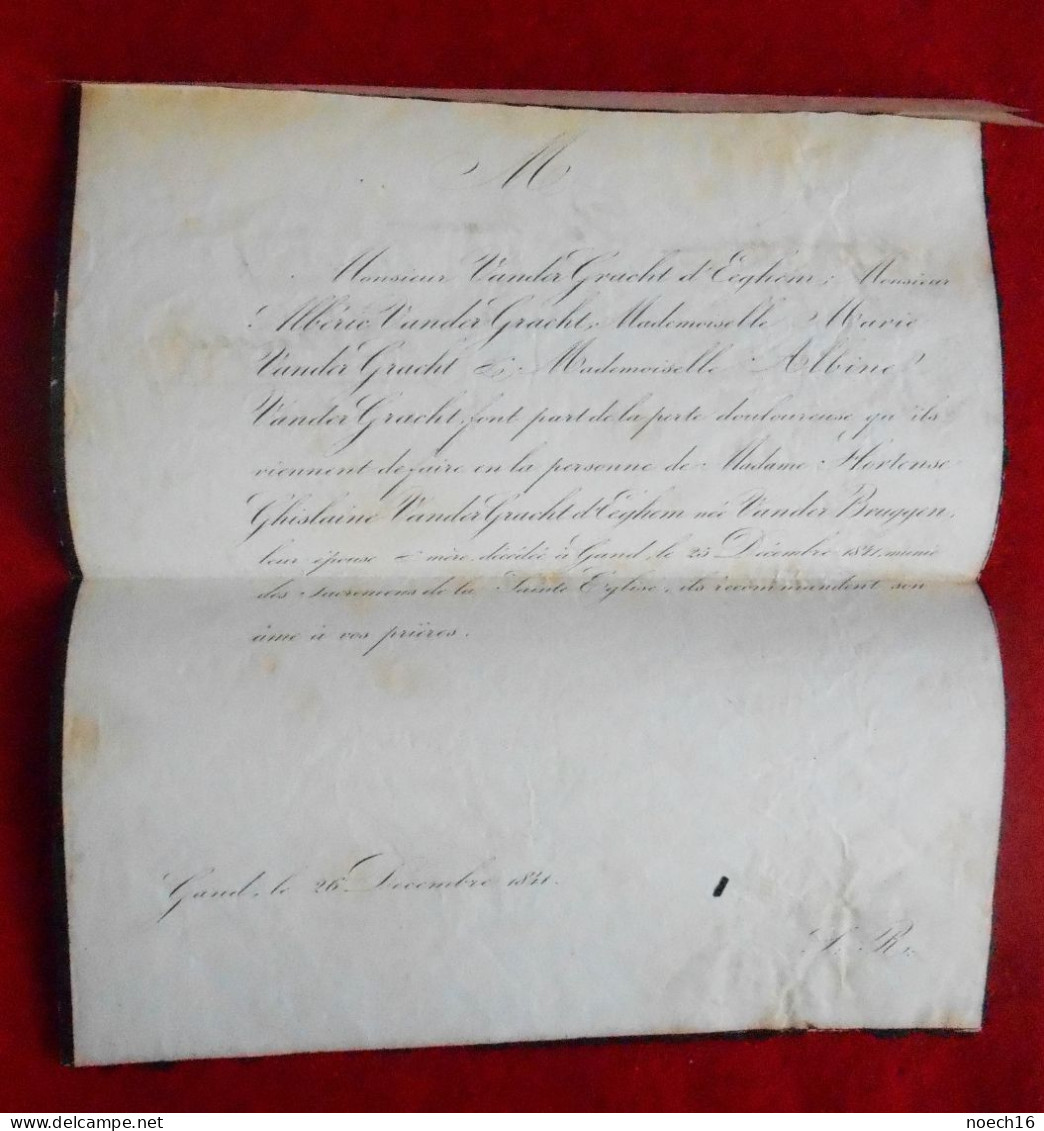 M
Monsieur Vander Gracht d'Eeghem, Monsieur
Albéric Vander Gracht, Mademoiselle Marie
Vander Gracht & Mademoiselle Albine
Vander Gracht, font part de la perte douloureuse qu'ils
viennent de faire en la personne de Madame Hortense
Ghislaine Vander Gracht d'Eeghem née Vander Bruggen,
leur épouse & mère, décédée à Gand, le 25 Décembre 1841, munie
des Sacremens de la Sainte Eglise, ils recommandent son
âme à vos prières.
Gand, le 26 Decembre 1841.
noech16